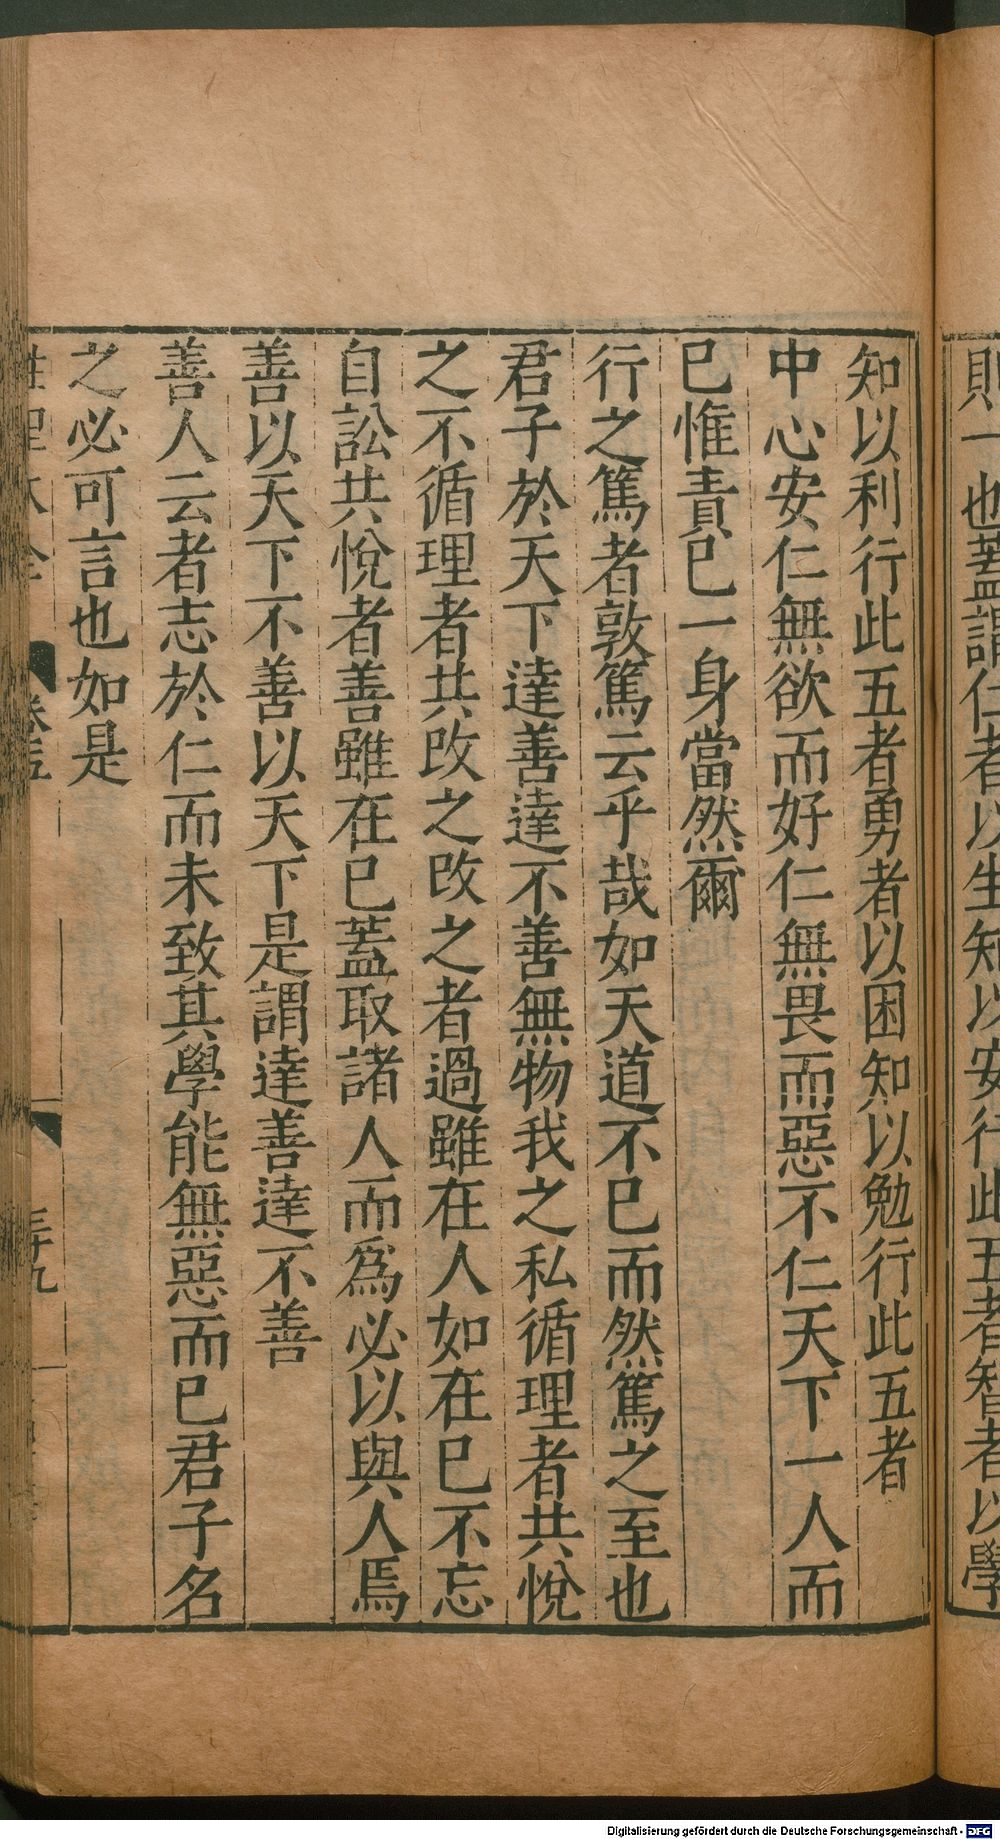 則一也蓋謂仁者以生知以安行此五者智者以學
知以利行此五者勇者以困知以勉行此五者
中心安仁無欲而好仁無畏而惡不仁天下一人而
已惟責已一身當然爾
行之篤者敦篤云乎哉如天道不已而然篤之至也
君子於天下達善達不善無物我之私循理者共悅
之不循理者共改之改之者過雖在人如在已不忘
自訟共悅者善雖在已蓋取諸人而爲必以與人焉
善以天下不善以天下是謂達善達不善
善人云者志於仁而未致其學能無惡而已君子名
之必可言也如是
卷五
三十九
Digitalisierung gefördert durch die Deutsche Forschungsgemeinschaft - DFG